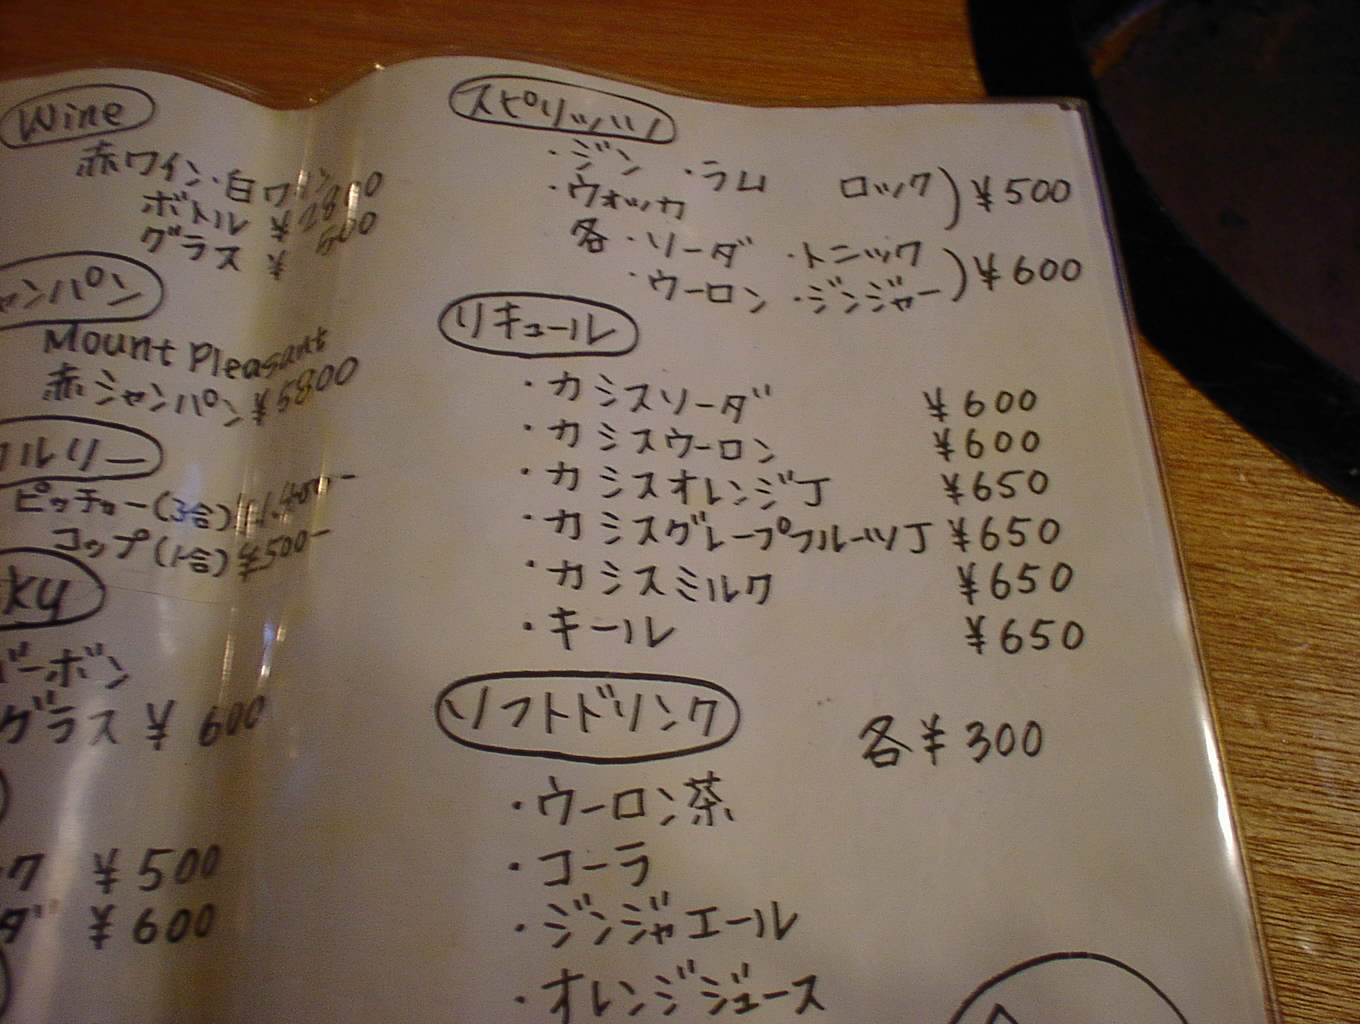 Wine
赤ワイン・白ワイン
ボトル ¥2800
グラス ¥ 500
ャンパン
Mount Pleasant
赤シャンパン ¥5800
ルリー
ピッチャー(3合) ¥1.400-
コップ(1合) ¥500-
ky
バーボン
グラス ¥ 600
ク ¥500
ダ ¥600
スピリッツ
・ジン ・ラム ロック) ¥500
・ウォッカ
各・ソーダ ・トニック
・ウーロン ・ジンジャー) ¥600
リキュール
・カシスソーダ ¥600
・カシスウーロン ¥600
・カシスオレンジJ ¥650
・カシスグレープフルーツJ ¥650
・カシスミルク ¥650
・キール ¥650
ソフトドリンク 各¥300
・ウーロン茶
・コーラ
・ジンジャエール
・オレンジジュース